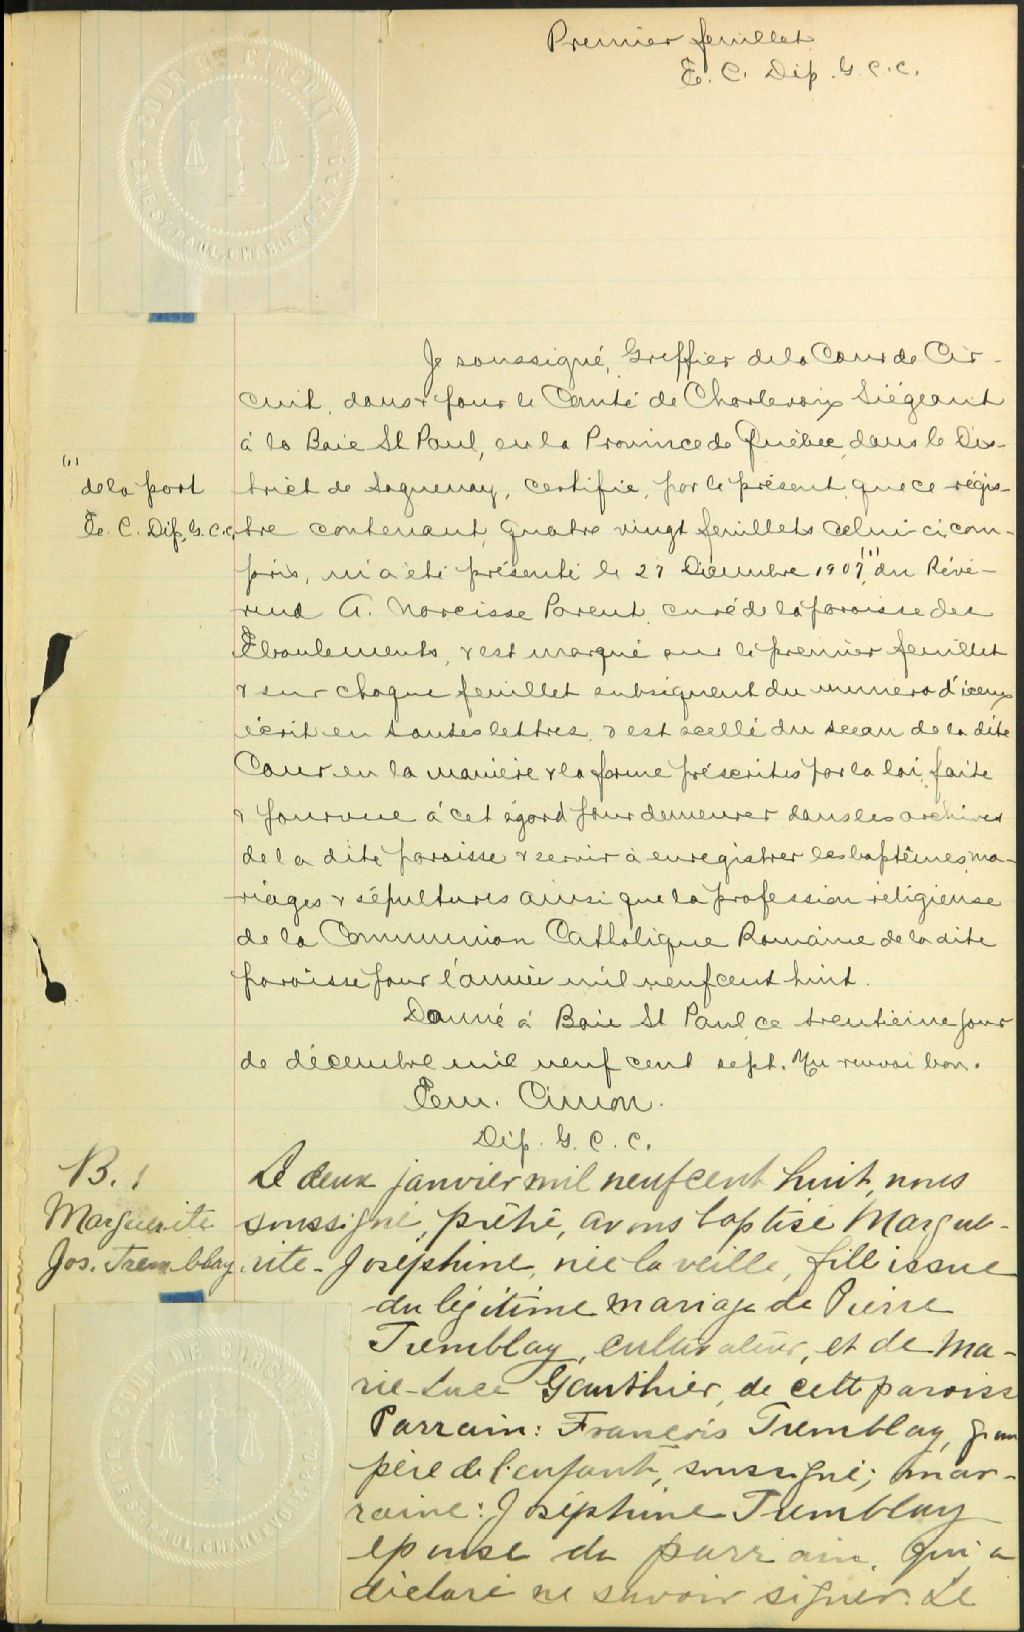 Premier feuillet
E. C. Dép. G. C. C.
COUR DE CIRCUIT
BAIE ST. PAUL, CHARLEVOIX, P.Q.
Je soussigné, Greffier de la Cour de Cir-
cuit, dans & pour le Comté de Charlevoix Siégeant
à la Baie St Paul, en la Province de Québec, dans le Dis-
"
de la part
E. C. Dép. G. C. C.
trict de Saguenay, certifie, par le présent que ce régis-
tre contenant, quatre vingt feuillets celui ci com-
pris, m'a été présenté le 27 Décembre 1907," du Révé-
rend A. Narcisse Parent, curé de la paroisse des
Eboulements, & est marqué sur le premier feuillet
& sur chaque feuillet subséquent du numéro d'iceux
écrit en toutes lettres, & est scellé du sceau de la dite
Cour en la manière & la forme préscrites par la loi, faite
& pourvue à cet égard pour demeurer dans les archives
de la dite paroisse & servir à enregistrer les baptêmes, ma-
riages & sépultures ainsi que la profession réligieuse
de la Communion Catholique Romaine de la dite
paroisse pour l'année mil neuf cent huit.
Donné à Baie St Paul, ce trentième jour
de décembre mil neuf cent sept. Un renvoi bon.
Em. Cimon.
Dép. G. C. C.
B. 1
Marguerite
Jos. Tremblay
Le deux janvier mil neuf cent huit, nous
soussigné, prêtre, avons baptisé Margue-
rite-Joséphine, née la veille, fille issue
du légitime mariage de Pierre
Tremblay, cultivateur, et de Ma-
rie-Luce Gauthier, de cette paroisse
Parrain: François Tremblay, gran
père de l'enfant, soussigné; mar-
raine: Joséphine Tremblay
épouse du parrain, qui a
déclaré ne savoir signer. Le
COUR DE CIRCUIT
BAIE ST. PAUL, CHARLEVOIX, P.Q.